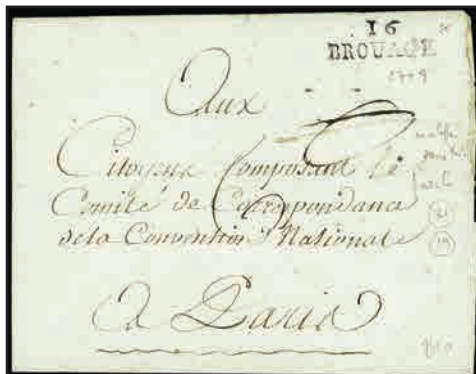 16
BROUAGE
Aux
Citoyens Composant le
Comité de Correspondance
de la Convention Nationale
A Paris